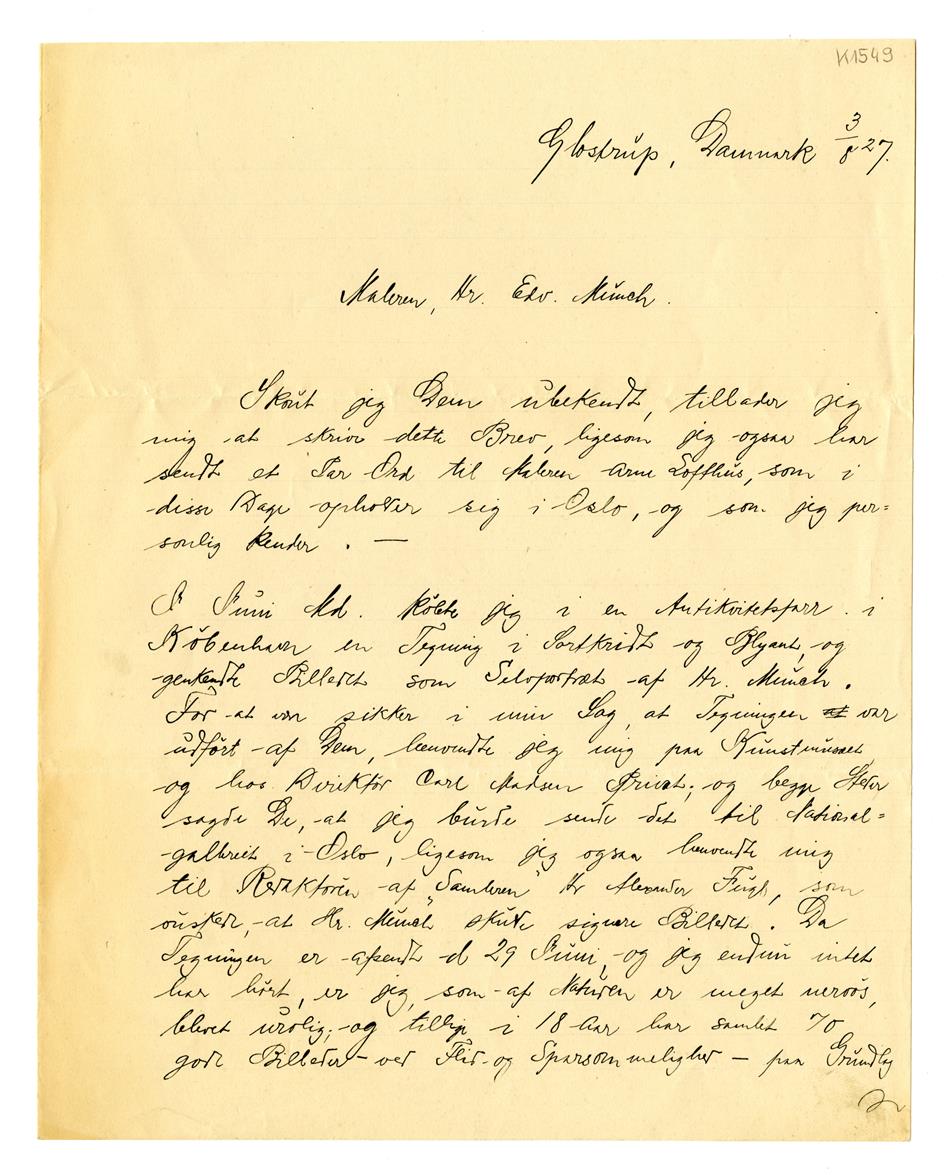 K1549
Glostrup, Danmark 3/8 27.
Maleren, Hr. Edv. Münch.
Skönt jeg Dem ubekendt, tillader jeg
mig at skrive dette Brev, ligesom jeg ogsaa har
sendt et Par Ord til Maleren Arne Lofthus, som i
disse Dage opholder sig i Oslo, og som jeg per=
sonlig kender. —
I Juni Md. köbte jeg i en Antikvitetsforr. i
Köbenhavn en Tegning i Sortkridt og Blyant, og
genkendte Billedet som Selvportræt af Hr. Münch.
For at være sikker i min Sag, at Tegningen var
udfört af Dem, henvendte jeg mig paa Kunstmuseet
og hos Direktör Carl Madsen Privat; og begge Steder
sagde De, at jeg burde sende det til National=
galleriet i Oslo, ligesom jeg ogsaa henvendte mig
til Redaktören af „Samleren" Hr Alexander, som
önsker, at Hr. Münch skulde signere Billedet. Da
Tegningen er afsendt d 29 Juni, og jeg endnu intet
har hört, er jeg, som af Naturen er meget nervös,
blevet urolig; og tillige i 18 Aar har samlet 70
gode Billeder – ved Flid og Sparsommelighed – paa Grundlag